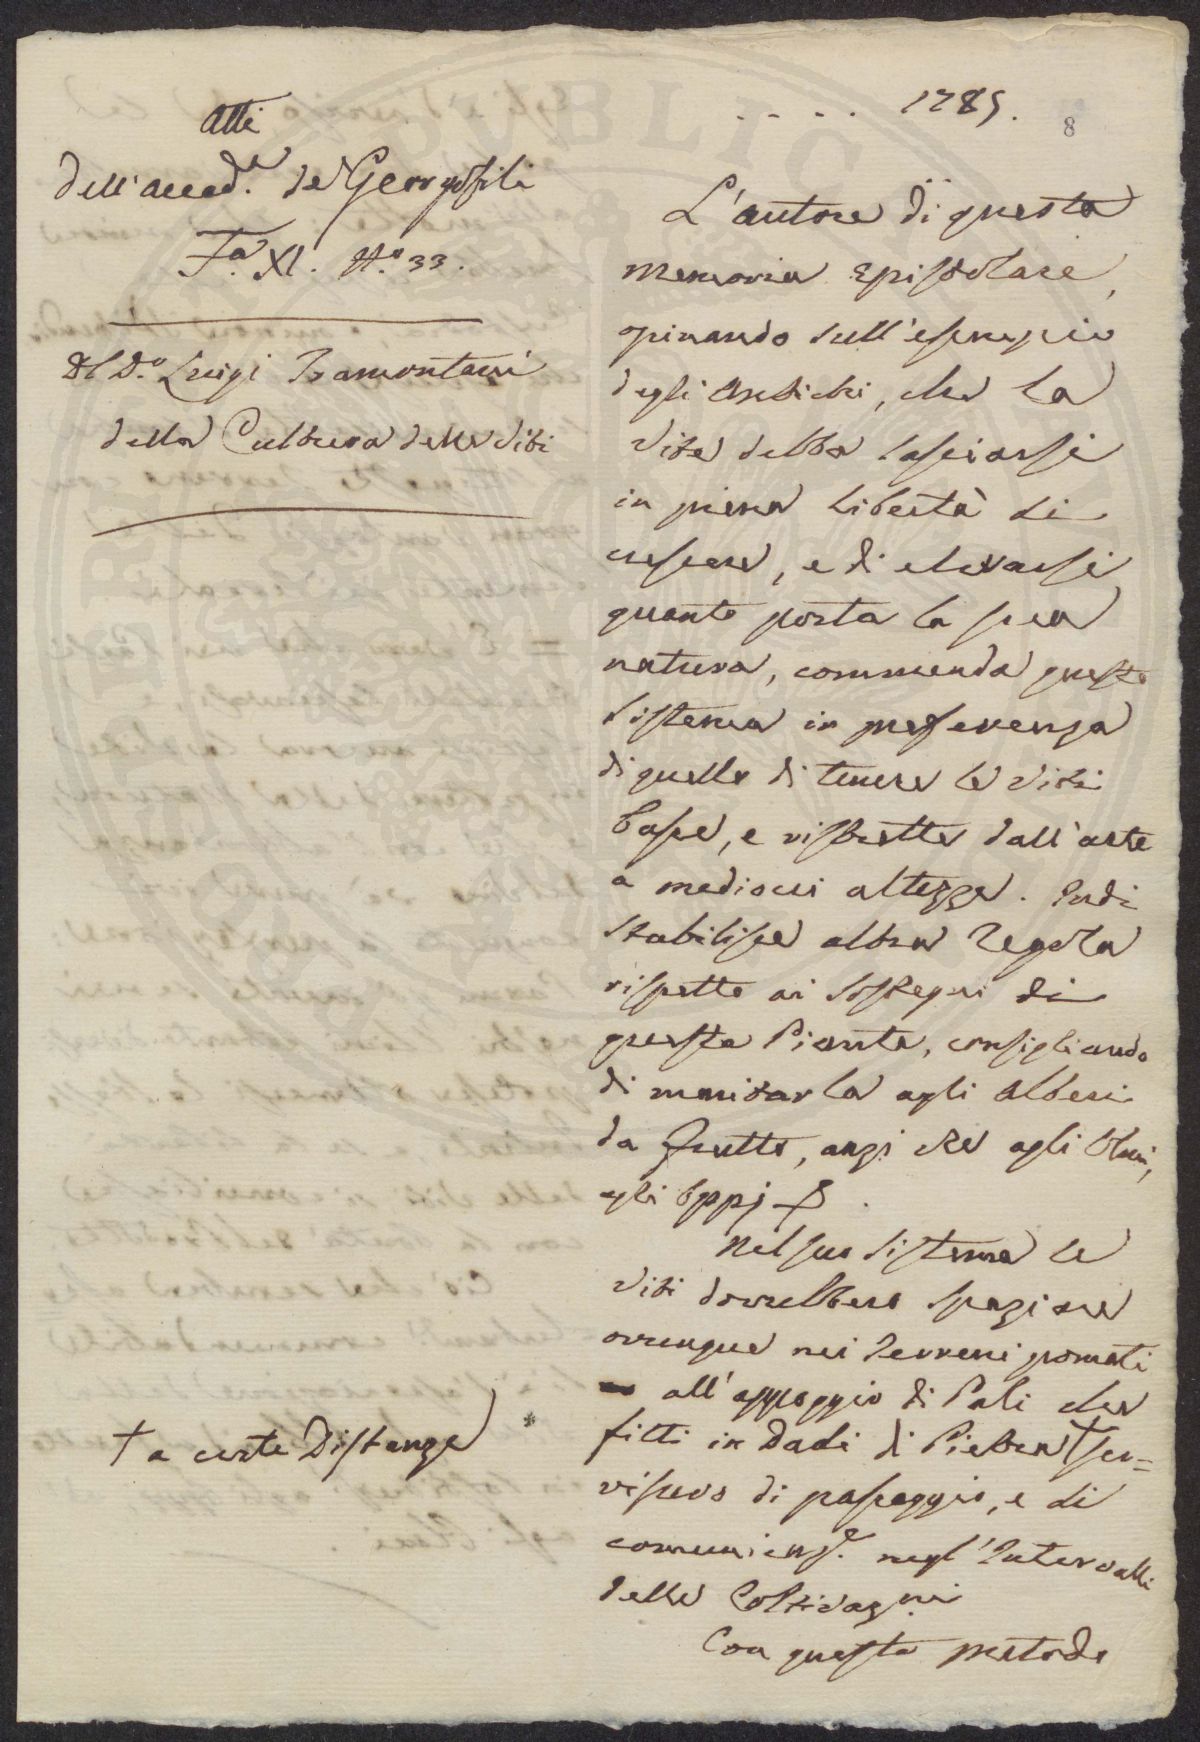 Atti
dell'accad.a de Georgofili
Fa. XI. No. 33.
Del D.e Luigi Tramontani
della Cultura delle Viti
. . . . 1785.
8
L'autore di questa
memoria Epistolare,
opinando sull'esempio
degli Antichi, che la
vite debba lasciarsi
in piena libertà di
crescere, e di elevarsi
quanto porta la sua
natura, commenda questo
sistema in preferenza
di quello di tenere le viti
basse, e ristrette dall'arte
a mediocri altezze. Indi
stabilisce altra regola
rispetto ai sostegni di
questa Pianta, consigliando
di maritarla agli alberi
da frutto, anzi che agli Olmi,
agli Oppj
Nel suo sistema le
viti dovrebbero spaziare
ovunque nei terreni
all'appoggio di Pali che
fitti in Dadi di Pietra † ser=
vissero di passeggio, e di
comunicaz.e negl'Intervalli
delle Coltivaz.ni
Con questo metodo
† a certe Distanze